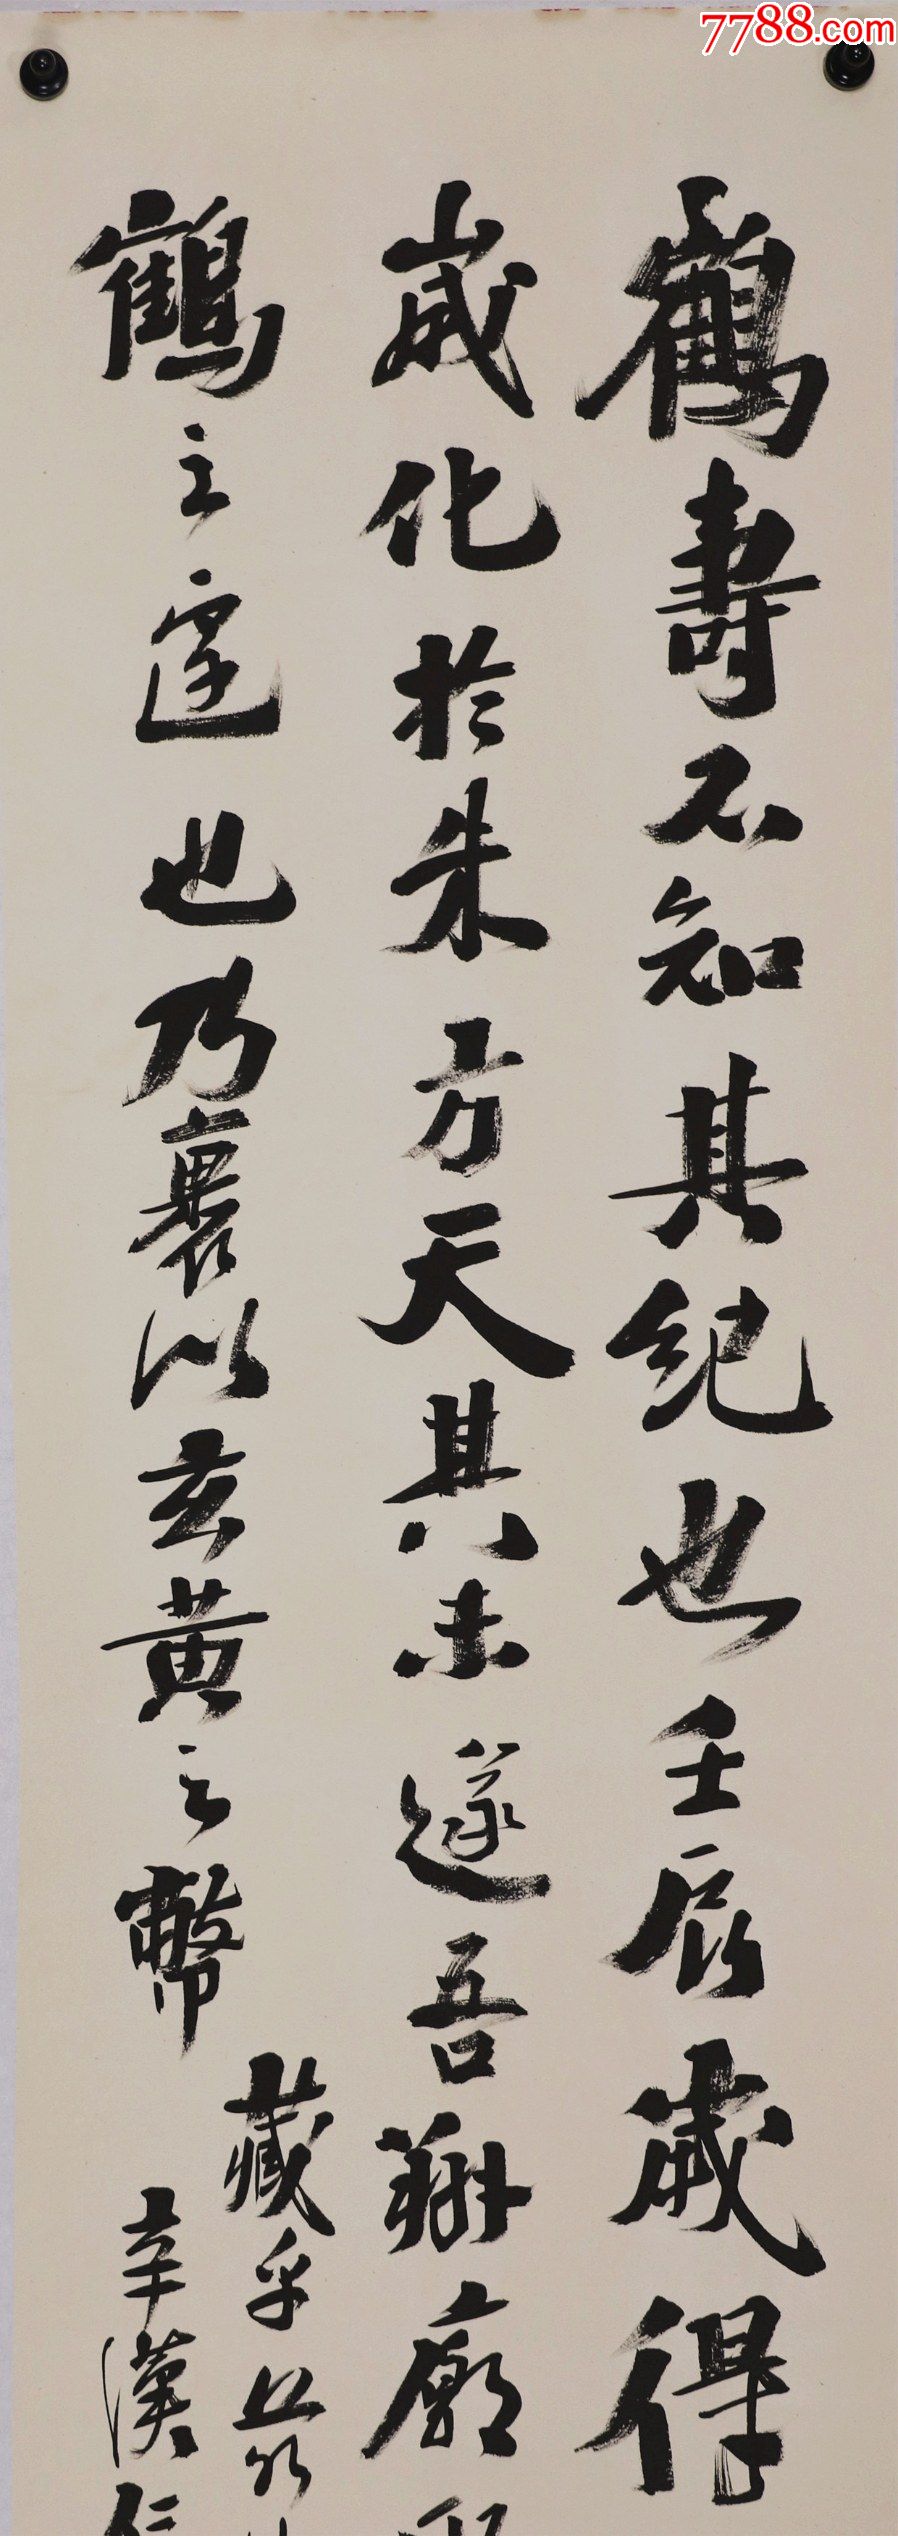 7788.com
鶴壽不知其紀也壬辰歲得
歲化於朱方天其未遂吾翔廓
鶴之遽也乃裹以玄黃之幣
藏乎茲
辛漢